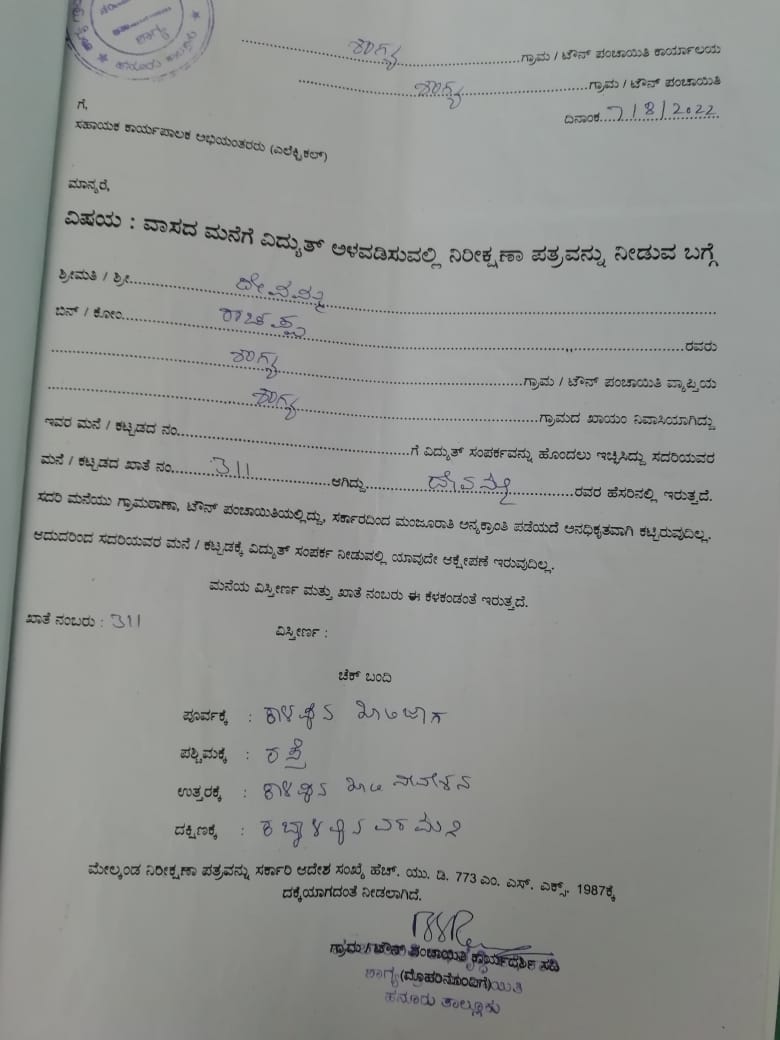 ಶಾಗ್ಯ
★ ಹನೂರು ತಾಲ್ಲೂಕು ★
ಶಾಗ್ಯ ಗ್ರಾಮ / ಟೌನ್ ಪಂಚಾಯಿತಿ ಕಾರ್ಯಾಲಯ
ಶಾಗ್ಯ ಗ್ರಾಮ / ಟೌನ್ ಪಂಚಾಯಿತಿ
ದಿನಾಂಕ 7/8/2022
ಗೆ,
ಸಹಾಯಕ ಕಾರ್ಯಪಾಲಕ ಅಭಿಯಂತರರು (ಎಲೆಕ್ಟ್ರಿಕಲ್)
ಮಾನ್ಯರೆ,
ವಿಷಯ : ವಾಸದ ಮನೆಗೆ ವಿದ್ಯುತ್ ಅಳವಡಿಸುವಲ್ಲಿ ನಿರೀಕ್ಷಣಾ ಪತ್ರವನ್ನು ನೀಡುವ ಬಗ್ಗೆ
ಶ್ರೀಮತಿ / ಶ್ರೀ ದೇವಮ್ಮ
ಬಿನ್ / ಕೋಂ ರಾಚಪ್ಪ ರವರು
ಶಾಗ್ಯ ಗ್ರಾಮ / ಟೌನ್ ಪಂಚಾಯಿತಿ ವ್ಯಾಪ್ತಿಯ
ಶಾಗ್ಯ ಗ್ರಾಮದ ಖಾಯಂ ನಿವಾಸಿಯಾಗಿದ್ದು
ಇವರ ಮನೆ / ಕಟ್ಟಡದ ನಂ. ಗೆ ವಿದ್ಯುತ್ ಸಂಪರ್ಕವನ್ನು ಹೊಂದಲು ಇಚ್ಚಿಸಿದ್ದು ಸದರಿಯವರ
ಮನೆ / ಕಟ್ಟಡದ ಖಾತೆ ನಂ. 311 ಆಗಿದ್ದು ದೇವಮ್ಮ ರವರ ಹೆಸರಿನಲ್ಲಿ ಇರುತ್ತದೆ.
ಸದರಿ ಮನೆಯು ಗ್ರಾಮಠಾಣಾ, ಟೌನ್ ಪಂಚಾಯಿತಿಯಲ್ಲಿದ್ದು, ಸರ್ಕಾರದಿಂದ ಮಂಜೂರಾತಿ ಅನ್ಯಕ್ರಾಂತಿ ಪಡೆಯದೆ ಅನಧಿಕೃತವಾಗಿ ಕಟ್ಟಿರುವುದಿಲ್ಲ.
ಆದುದರಿಂದ ಸದರಿಯವರ ಮನೆ / ಕಟ್ಟಡಕ್ಕೆ ವಿದ್ಯುತ್ ಸಂಪರ್ಕ ನೀಡುವಲ್ಲಿ ಯಾವುದೇ ಆಕ್ಷೇಪಣೆ ಇರುವುದಿಲ್ಲ.
ಮನೆಯ ವಿಸ್ತೀರ್ಣ ಮತ್ತು ಖಾತೆ ನಂಬರು ಈ ಕೆಳಕಂಡಂತೆ ಇರುತ್ತದೆ.
ಖಾತೆ ನಂಬರು : 311 ವಿಸ್ತೀರ್ಣ :
ಚೆಕ್ ಬಂದಿ
ಪೂರ್ವಕ್ಕೆ :
ಪಶ್ಚಿಮಕ್ಕೆ : ರಸ್ತೆ
ಉತ್ತರಕ್ಕೆ :
ದಕ್ಷಿಣಕ್ಕೆ :
ಮೇಲ್ಕಂಡ ನಿರೀಕ್ಷಣಾ ಪತ್ರವನ್ನು ಸರ್ಕಾರಿ ಆದೇಶ ಸಂಖ್ಯೆ ಹೆಚ್. ಯು. ಡಿ. 773 ಎಂ. ಎಸ್. ಎಕ್ಸ್. 1987ಕ್ಕೆ
ದಕ್ಕೆಯಾಗದಂತೆ ನೀಡಲಾಗಿದೆ.
ಗ್ರಾಮ / ಟೌನ್ ಪಂಚಾಯಿತಿ ಕಾರ್ಯದರ್ಶಿ ಸಹಿ
(ಮೊಹರಿನೊಂದಿಗೆ)
ಹನೂರು ತಾಲ್ಲೂಕು